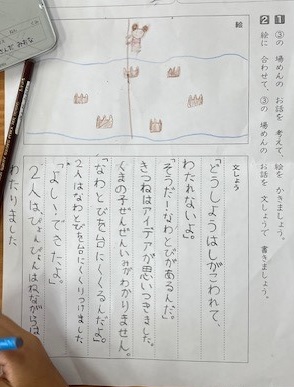 1 ③の 場めんの お話を 考えて、絵を かきましょう。
2 絵に 合わせて、③の 場めんの お話を 文しょうで 書きましょう。
絵
文しょう
「どうしようはしがこわれて、
わたれないよ。
「そうだ!なわとびがあるんだ。
きつねはアイデアが思いつきました。
くまの子ぜんぜんいみがわかりません。
「なわとびを台にくくるんだよ。」
2人はなわとびを台にくくりつけました
「よし〜できたよ。」
2人は、ぴょんぴょんはねながらは
わたりました